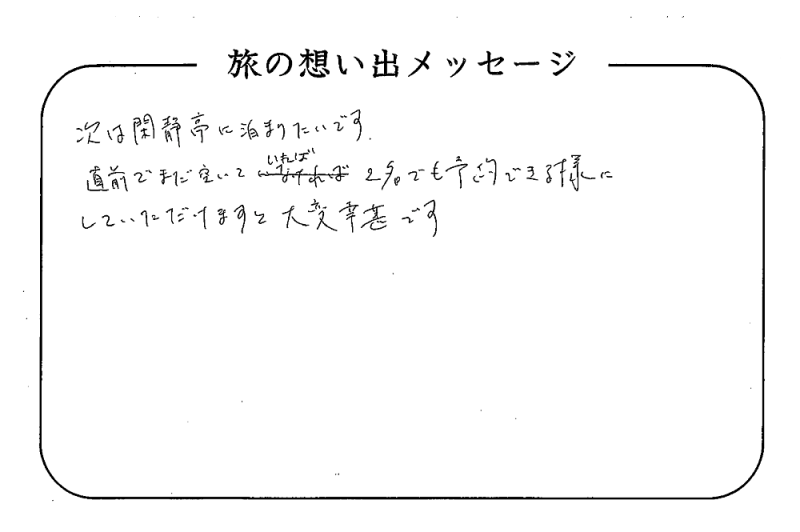 旅の想い出メッセージ
次は閑静亭に泊まりたいです.
直前でまだ空いていれば 2名でも予約できる様に
していただけますと大変幸甚です